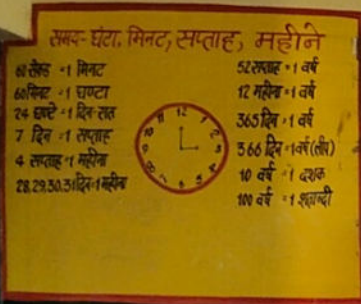 समय- घंटा, मिनट, सप्ताह, महीने
60 सेकेन्ड = 1 मिनट
60 मिनट = 1 घण्टा
24 घण्टे = 1 दिन-रात
7 दिन = 1 सप्ताह
4 सप्ताह = 1 महीना
28,29,30,31 दिन = 1 महीना
12
1
2
3
4
5
6
7
8
9
10
11
52 सप्ताह = 1 वर्ष
12 महीना = 1 वर्ष
365 दिन = 1 वर्ष
366 दिन = 1 वर्ष (लीप)
10 वर्ष = 1 दशक
100 वर्ष = 1 शताब्दी